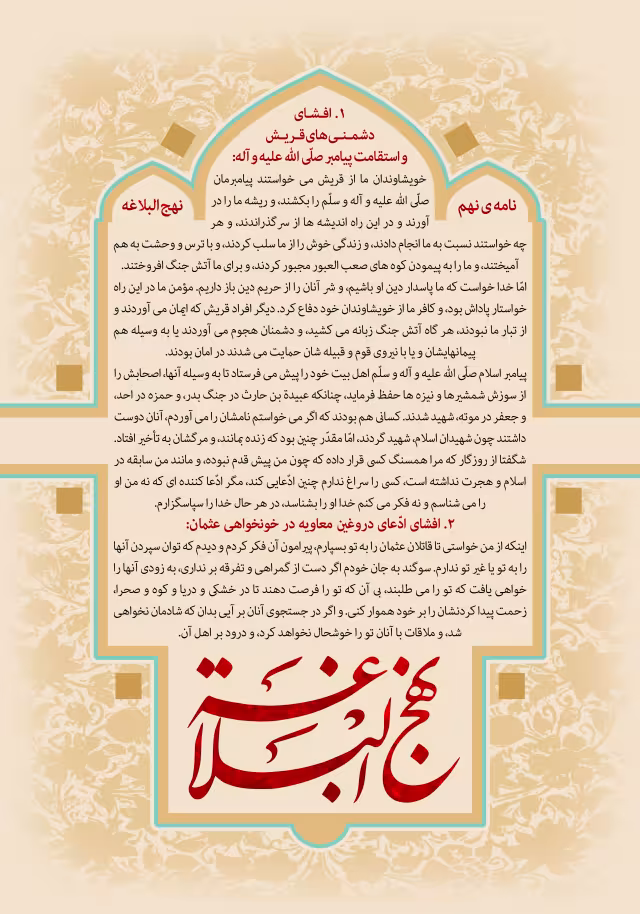 ۱. افشـای
دشمـنـی‌های قـریـش
و استقامت پیامبر صلّی الله علیه و آله:
نامه‌ی نهم
نهج البلاغه
خویشاوندان ما از قریش می خواستند پیامبرمان
صلّی الله علیه و آله و سلّم را بکشند، و ریشه ما را در
آورند و در این راه اندیشه ها از سر گذراندند، و هر
چه خواستند نسبت به ما انجام دادند، و زندگی خوش را از ما سلب کردند، و با ترس و وحشت به هم
آمیختند، و ما را به پیمودن کوه های صعب العبور مجبور کردند، و برای ما آتش جنگ افروختند.
امّا خدا خواست که ما پاسدار دین او باشیم، و شر آنان را از حریم دین باز داریم. مؤمن ما در این راه
خواستار پاداش بود، و کافر ما از خویشاوندان خود دفاع کرد. دیگر افراد قریش که ایمان می آوردند و
از تبار ما نبودند، هر گاه آتش جنگ زبانه می کشید، و دشمنان هجوم می آوردند یا به وسیله هم
پیمانهایشان و یا با نیروی قوم و قبیله شان حمایت می شدند در امان بودند.
پیامبر اسلام صلّی الله علیه و آله و سلّم اهل بیت خود را پیش می فرستاد تا به وسیله آنها، اصحابش را
از سوزش شمشیرها و نیزه ها حفظ فرماید، چنانکه عبیدة بن حارث در جنگ بدر، و حمزه در احد،
و جعفر در موته، شهید شدند. کسانی هم بودند که اگر می خواستم نامشان را می آوردم، آنان دوست
داشتند چون شهیدان اسلام، شهید گردند، امّا مقدّر چنین بود که زنده بمانند، و مرگشان به تأخیر افتاد.
شگفتا از روزگار که مرا همسنگ کسی قرار داده که چون من پیش قدم نبوده، و مانند من سابقه در
اسلام و هجرت نداشته است، کسی را سراغ ندارم چنین ادّعایی کند، مگر ادّعا کننده ای که نه من او
را می شناسم و نه فکر می کنم خدا او را بشناسد، در هر حال خدا را سپاسگزارم.
۲. افشای ادّعای دروغین معاویه در خونخواهی عثمان:
اینکه از من خواستی تا قاتلان عثمان را به تو بسپارم، پیرامون آن فکر کردم و دیدم که توان سپردن آنها
را به تو یا غیر تو ندارم. سوگند به جان خودم اگر دست از گمراهی و تفرقه بر نداری، به زودی آنها را
خواهی یافت که تو را می طلبند، بی آن که تو را فرصت دهند تا در خشکی و دریا و کوه و صحرا،
زحمت پیدا کردنشان را بر خود هموار کنی. و اگر در جستجوی آنان بر آیی بدان که شادمان نخواهی
شد، و ملاقات با آنان تو را خوشحال نخواهد کرد، و درود بر اهل آن.
نهج البلاغة